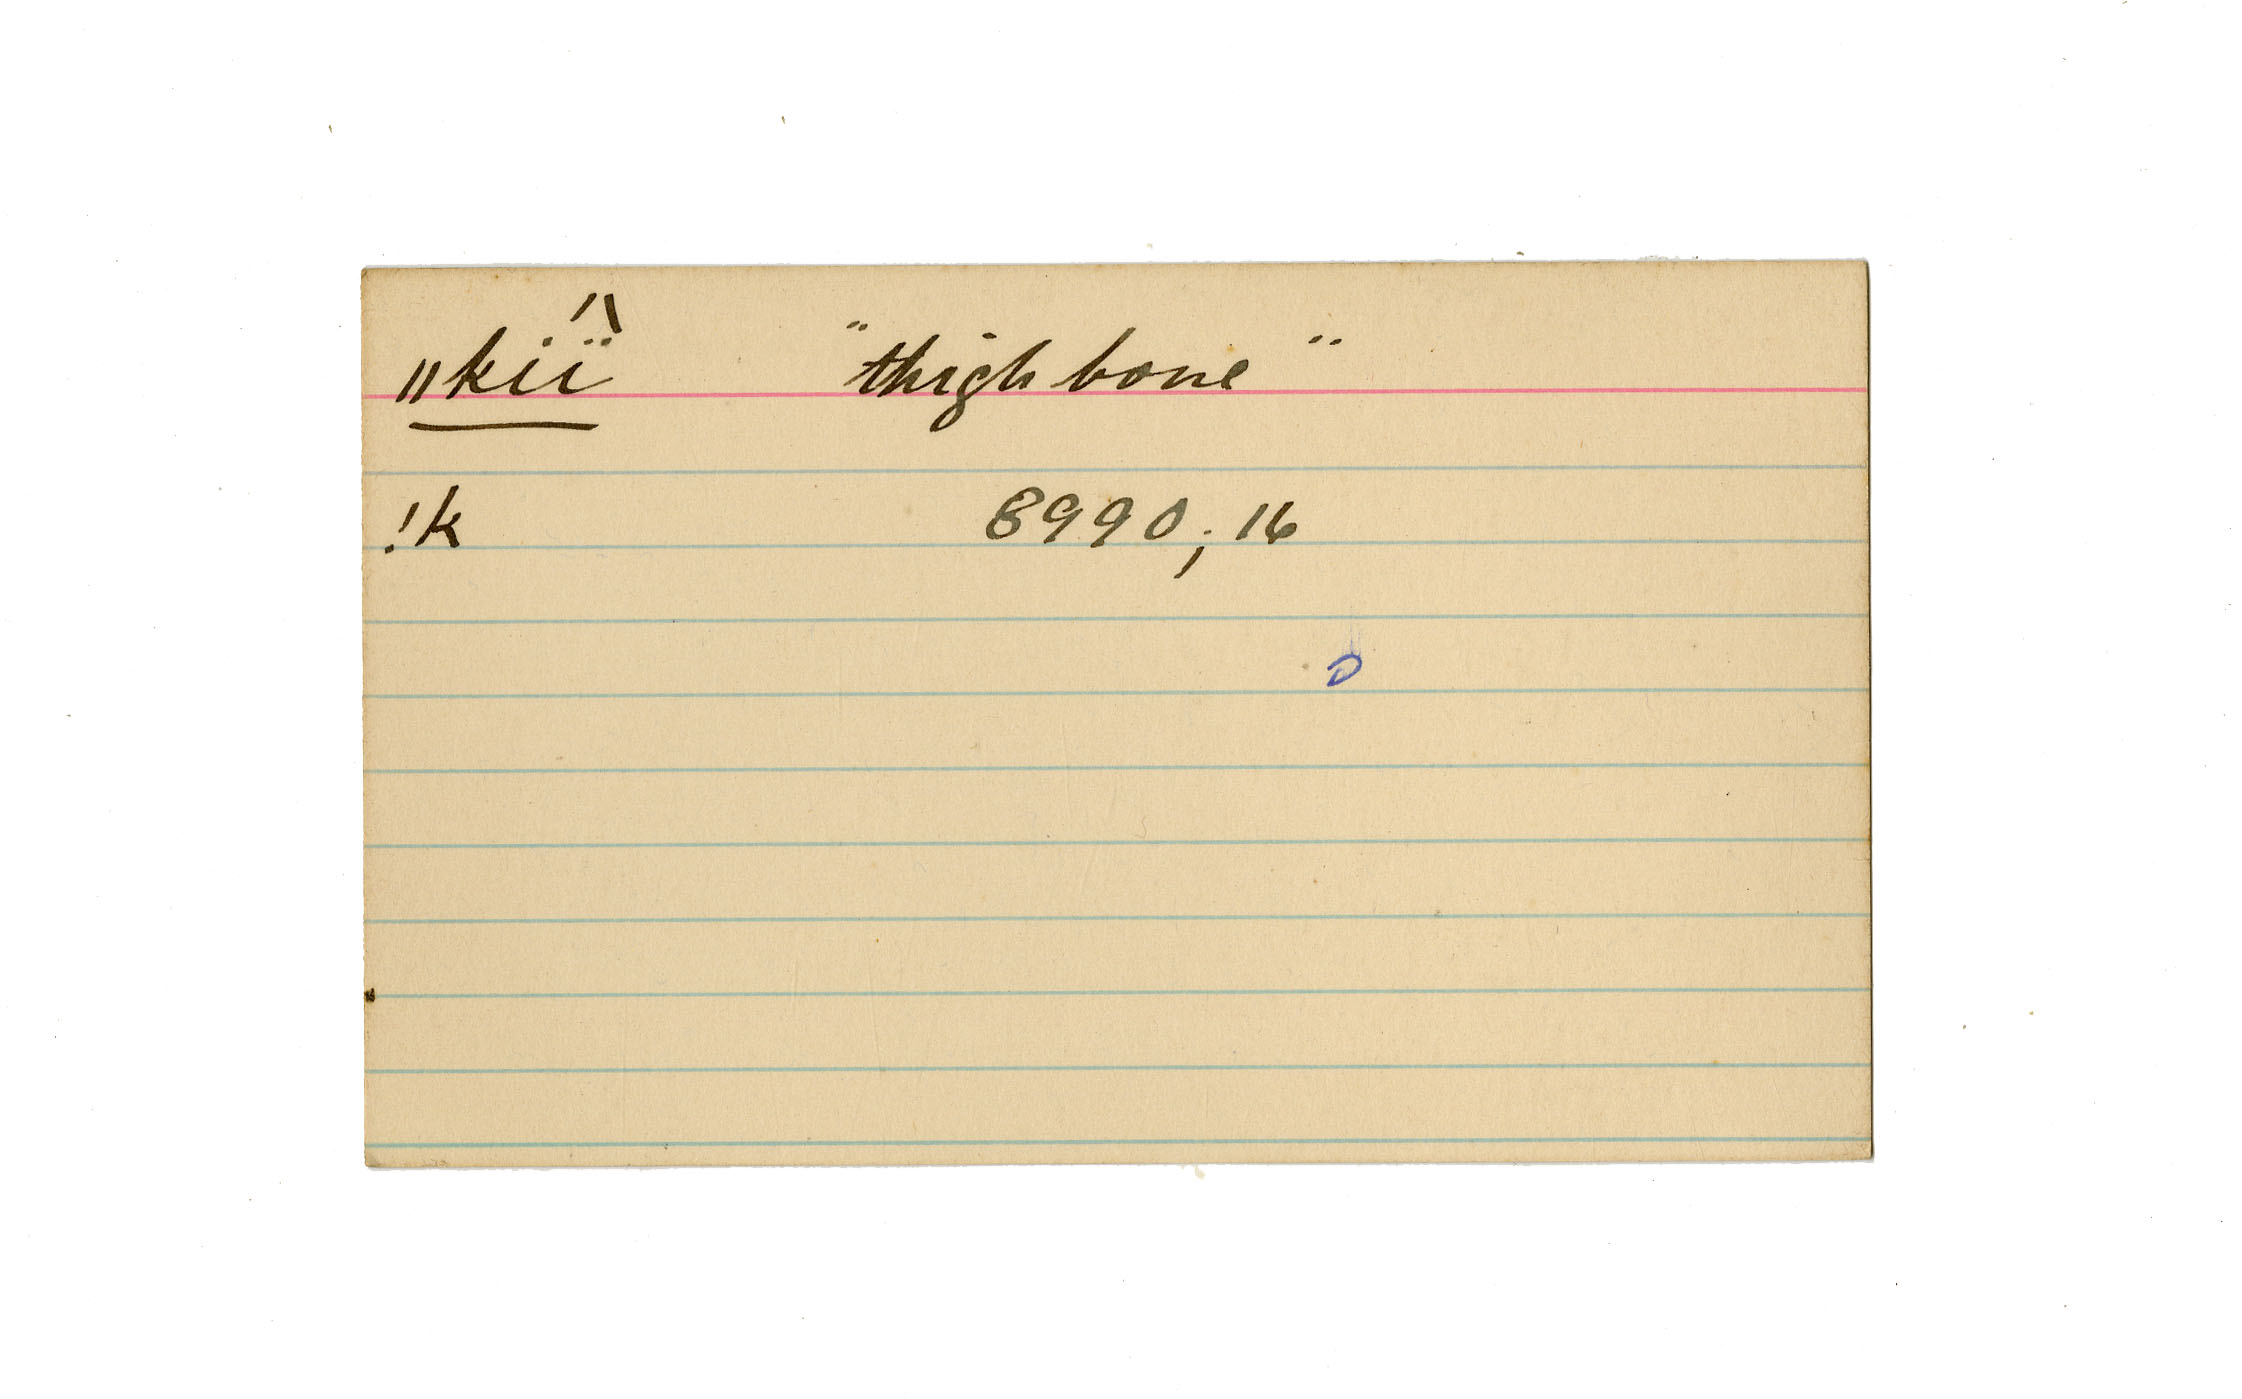 "kiï̂ "thigh bone"
!k 8990; 16
D